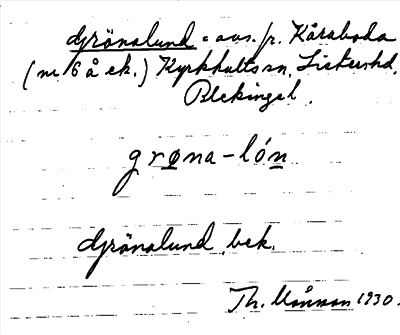 Grönalund = avs. fr. Kåraboda
(nr 6 å ek.) Kyrkhults sn, Listers hd,
Blekinge l.
grøna-lón
Grönalund, bek.
Th. Månsson 1930.